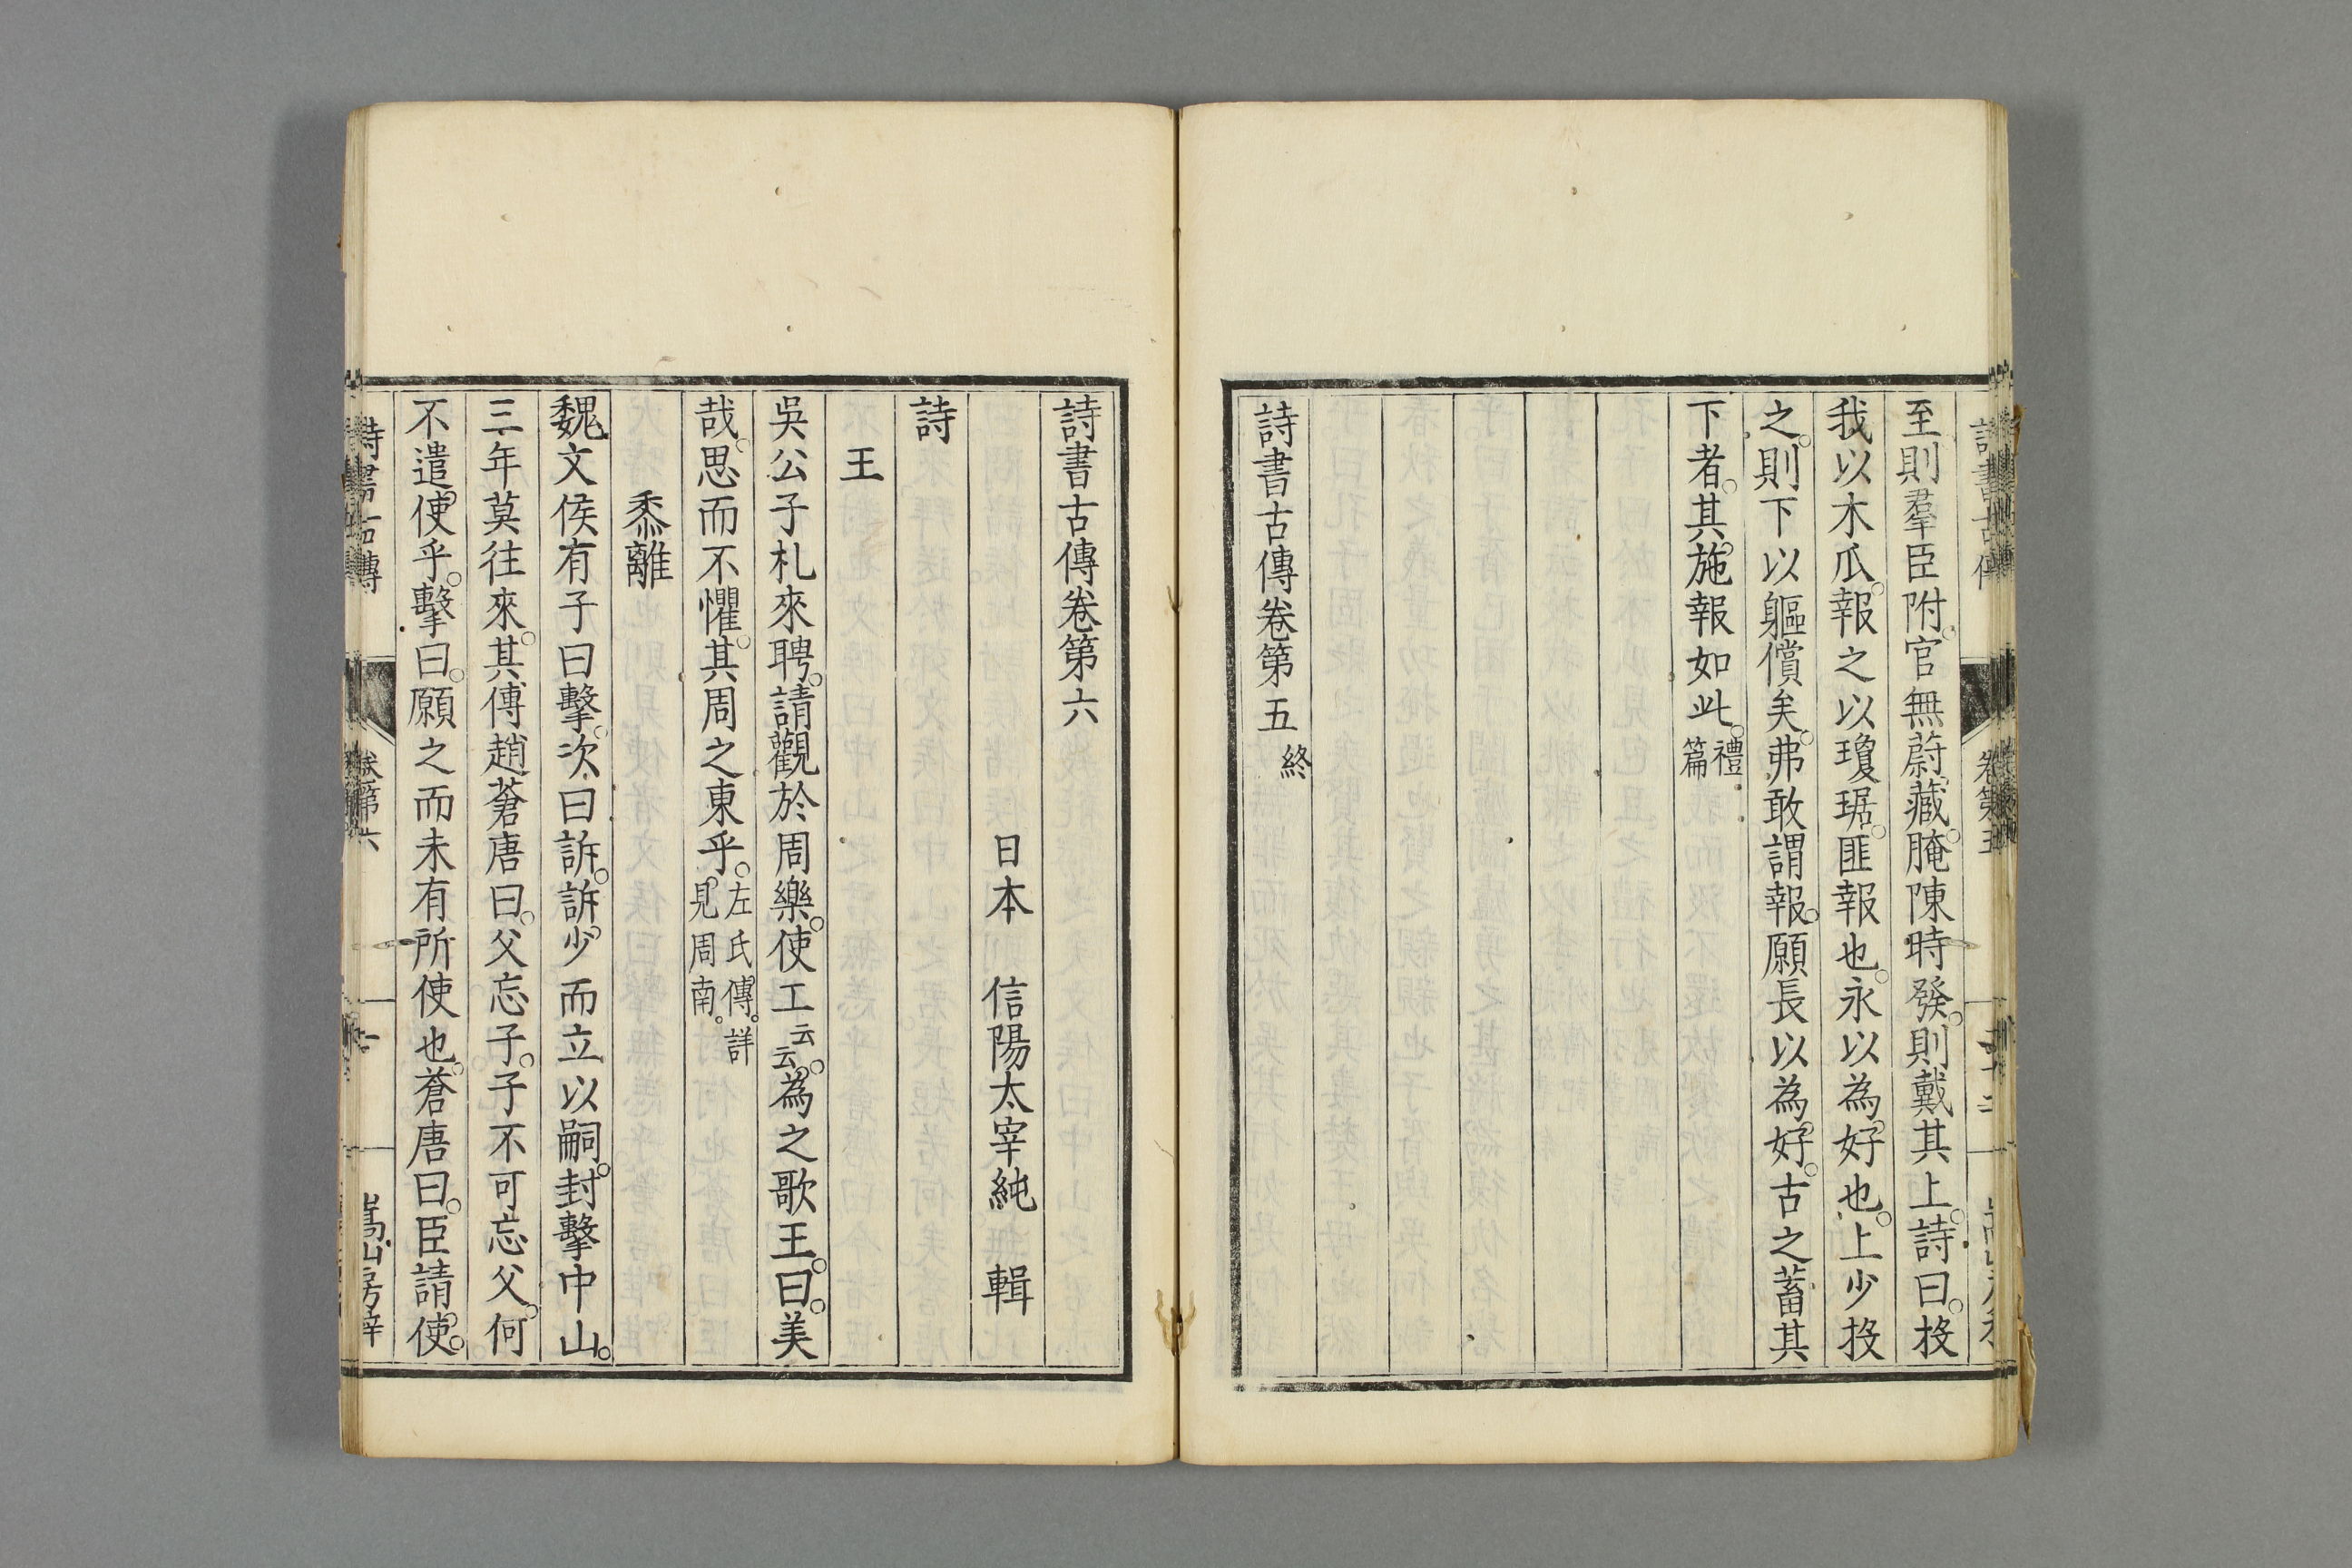 至則羣臣附。官無蔚藏。腌陳時發。則戴其上。詩曰。投
我以木瓜。報之以瓊琚。匪報也。永以為好也。上少投
之。則下以軀償矣。弗敢謂報。願長以為好。古之蓄其
下者。其施報如此。禮篇
詩書古傳卷第五終
詩書古傳卷第六
日本 信陽太宰純 輯
詩
王
吳公子札來聘。請觀於周樂。使工云云。為之歌王。曰。美
哉。思而不懼。其周之東乎。左氏傳。詳見周南。
黍離
魏文侯有子曰擊。次曰訴。訴少而立以嗣。封擊中山。
三年莫往來。其傳趙蒼唐曰。父忘子。子不可忘父。何
不遣使乎。擊曰。願之而未有所使也。蒼唐曰。臣請使。
詩書古傳 卷第六 一 嵩山房梓